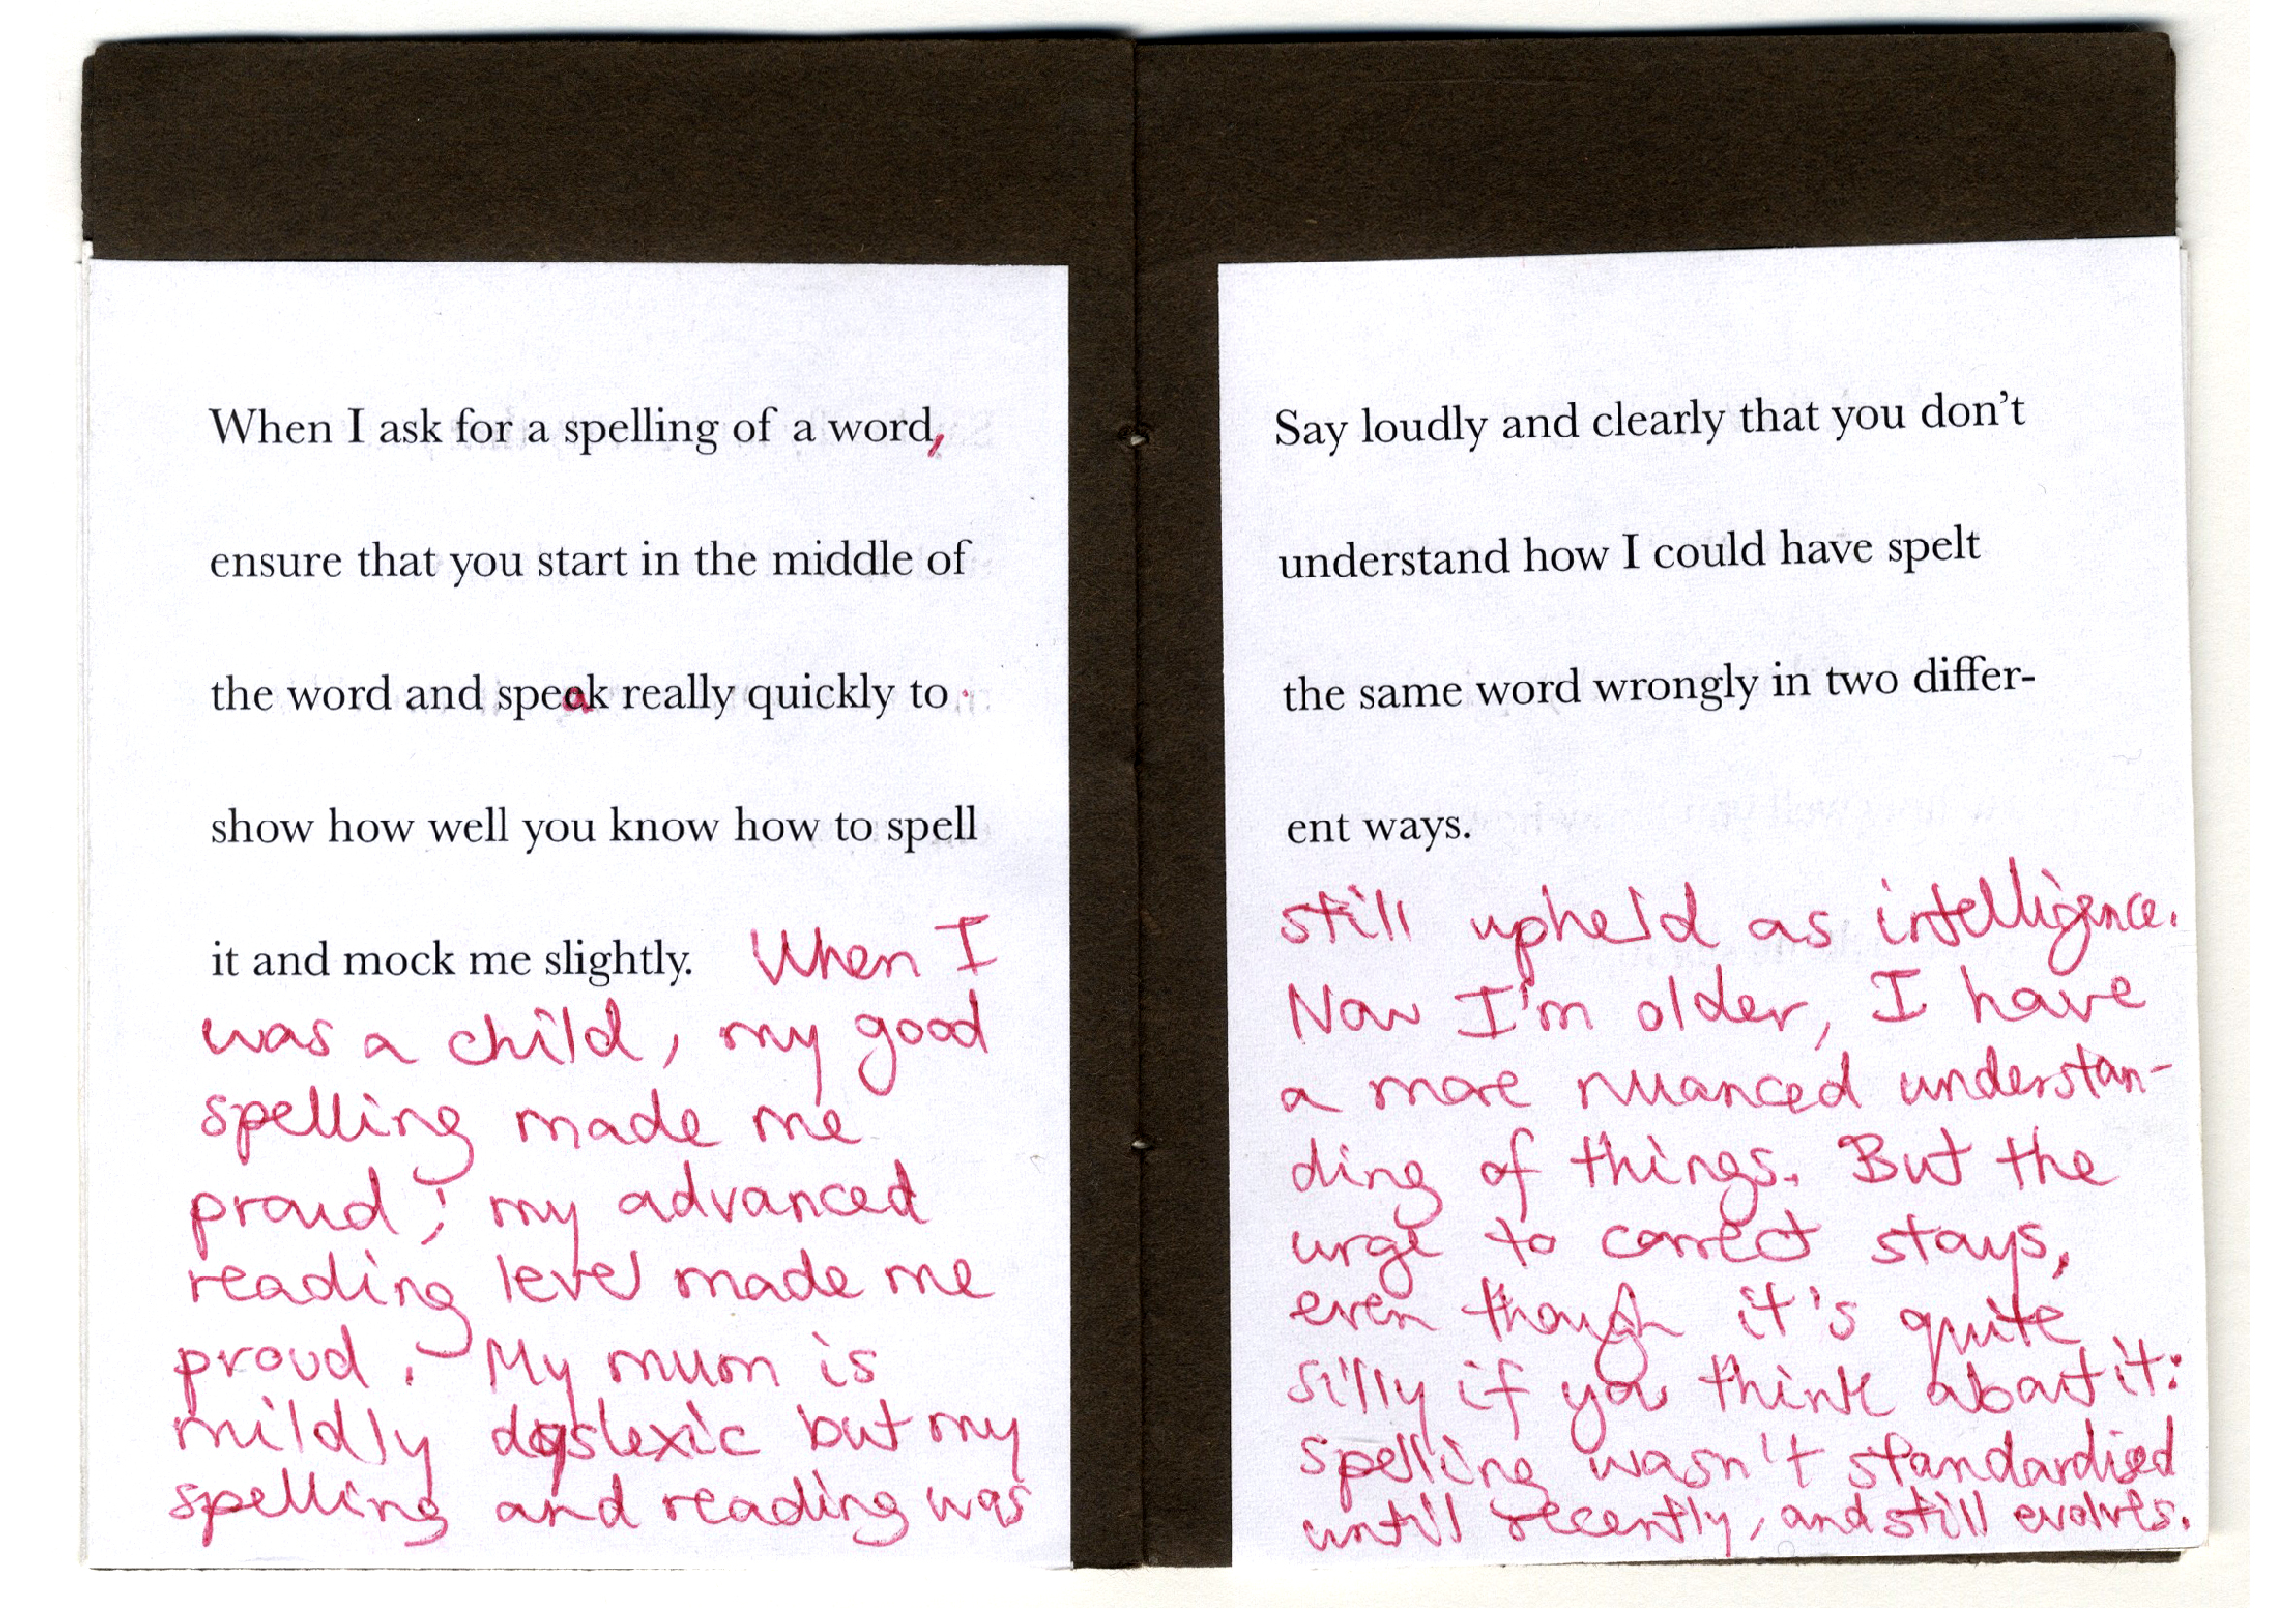 When I ask for a spelling of a word,
ensure that you start in the middle of
the word and speak really quickly to
show how well you know how to spell
it and mock me slightly. When I
was a child, my good
spelling made me
proud; my advanced
reading level made me
proud. My mum is
mildly dyslexic but my
spelling and reading was
Say loudly and clearly that you don't
understand how I could have spelt
the same word wrongly in two differ-
ent ways.
still upheld as intelligence.
Now I'm older, I have
a more nuanced understan-
ding of things. But the
urge to correct stays,
even though it's quite
silly if you think about it:
spelling wasn't standardised
until recently, and still evolves.